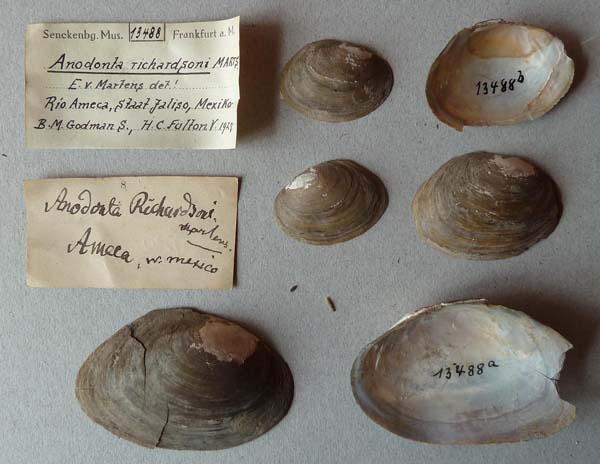 Senckenbg. Mus. 13488 Frankfurt a. M.
Anodonta richardsoni MARTS
E. v. Martens det.!
Rio Ameca, Staat Jaliso, Mexiko
B. M. Godman S., H. C. Fulton V.
8
Anodonta Richardsoni
Martens.
Ameca, W. Mexico
13488 b
13488 a